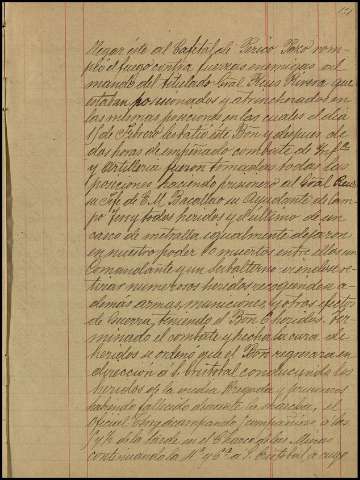 llegar éste al Cafetal de Perico Pozo rom-
pió el fuego contra fuerzas enemigas al
mando del titulado Gral Rius Rivera que
estaban posesionados y atrincherados en
las mismas posiciones en las cuales el dia
17 de Febrero batio este Bon y despues de
dos horas de empeñado combate de Ynfa
y Artilleria fueron tomadas todas las
posiciones haciendo prisionero al Gral Rius
su Jefe de E.M. Bacallao su Ayudante de cam-
po Terry todos heridos y el ultimo de un
casco de metralla igualmente dejaron
en nuestro poder 10 muertos entre ellos un
Comandante y un subalterno viendose re-
tirar numerosos heridos recogiendo a-
demás armas, municiones y otros efectos
de Guerra, teniendo el Bon 6 heridos. Ter-
minado el combate y hecha la cura de
heridos se ordenó que el Bon regresara en
direccion a S. Cristobal conduciendo los
heridos de la media Brigada y prisioneros
habiendo fallecido durante la marcha, el
Oficial Terry acampando
de la tarde en el Charco de las Minas
continuando la y a S. Cristobal a cuyo